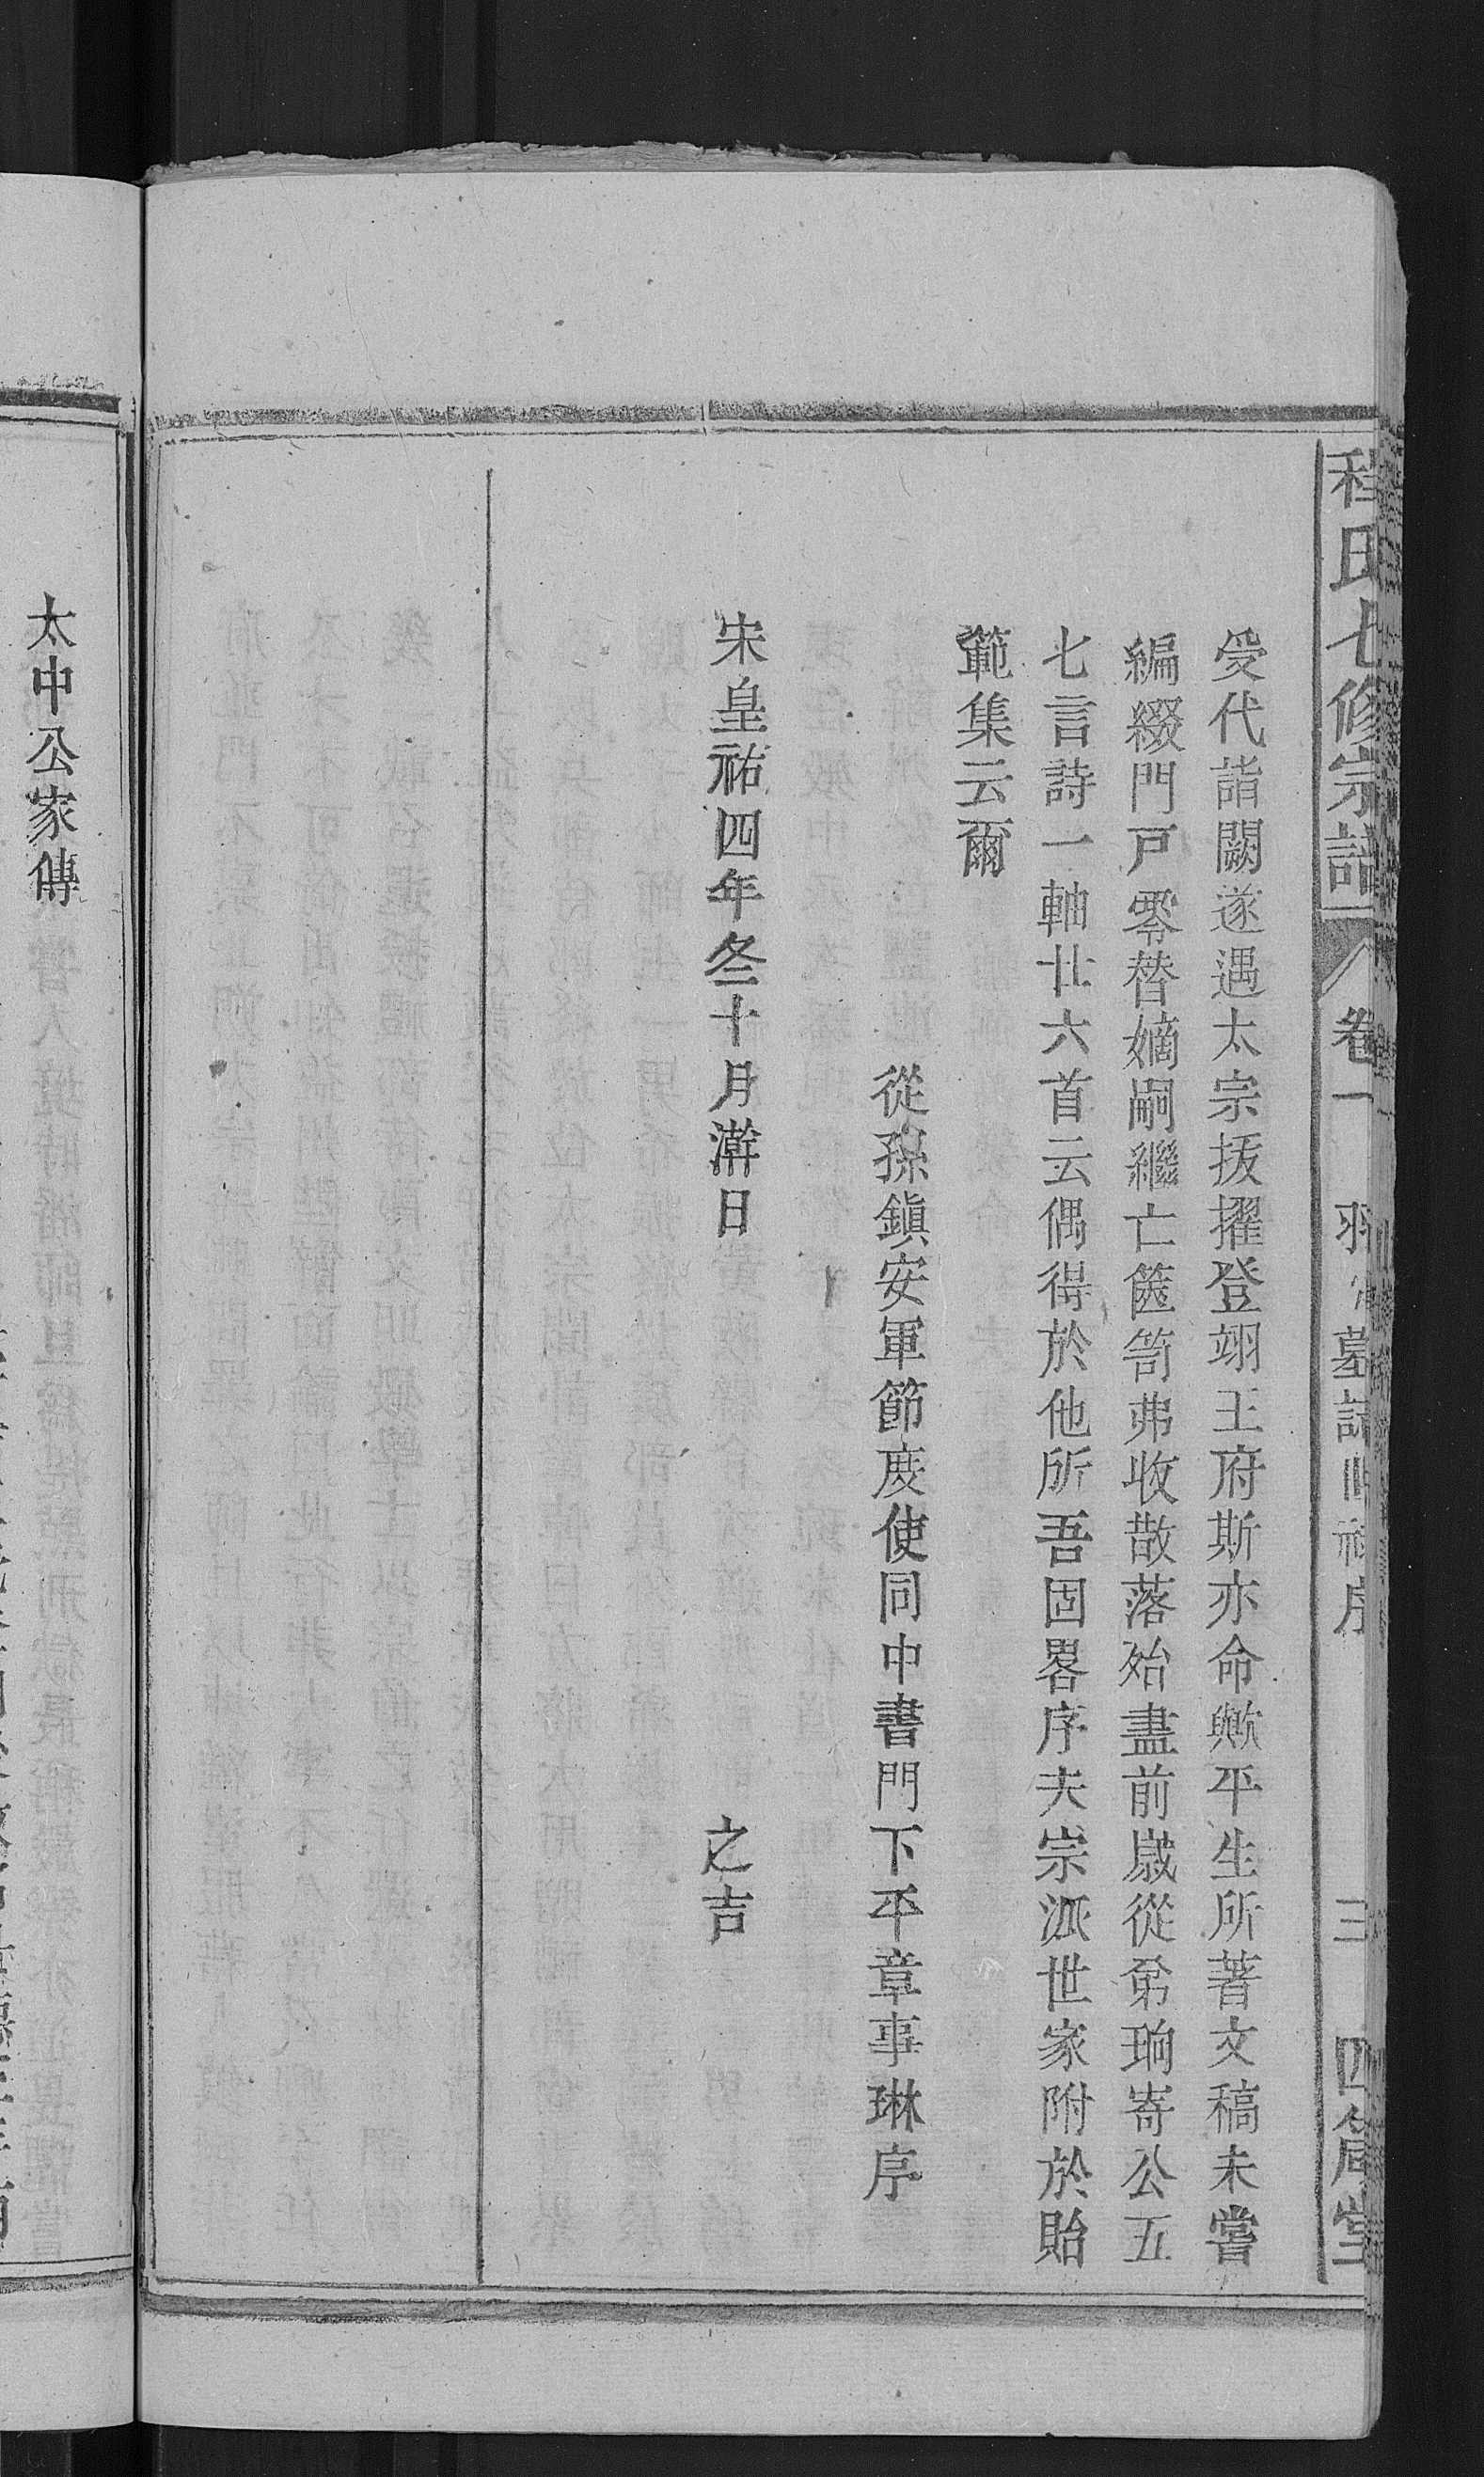 程氏七修宗譜
卷一
墓誌
序
三
受代詣闕遂遇太宗拔擢登翊王府斯亦命歟平生所著文稿未嘗
編綴門戸零替嫡嗣繼亡篋笥弗收散落殆盡前歲從弟珦寄公五
七言詩一軸廿六首云偶得於他所吾固畧序夫宗派世家附於貽
範集云爾
從孫鎮安軍節度使同中書門下平章事琳序
宋皇祐四年冬十月澣日
之吉
太中公家傳